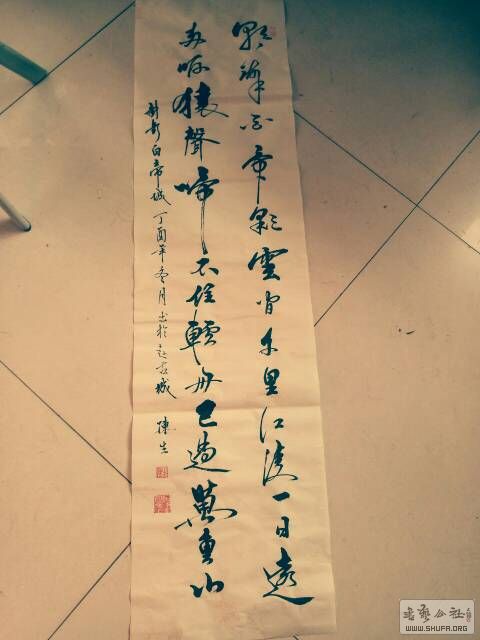 朝辭白帝彩雲間千里江陵一日還
兩岸猿聲啼不住輕舟已過萬重山
白帝城 丁酉年冬月書於 城 陳生
書藝公社
WWW.SHUFA.ORG